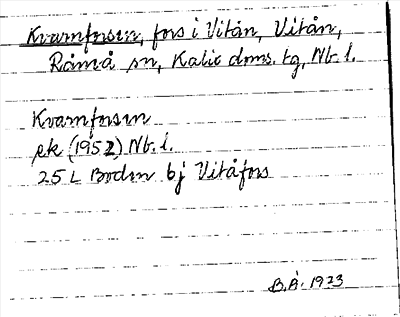 Kvarnforsen, fors i Vitån, Vitån,
Råneå sn, Kalix doms. tg, Nb. l.
Kvarnforsen
ek (1952) Nb. l.
25 L Boden bj Vitåfors
B.Å. 1923